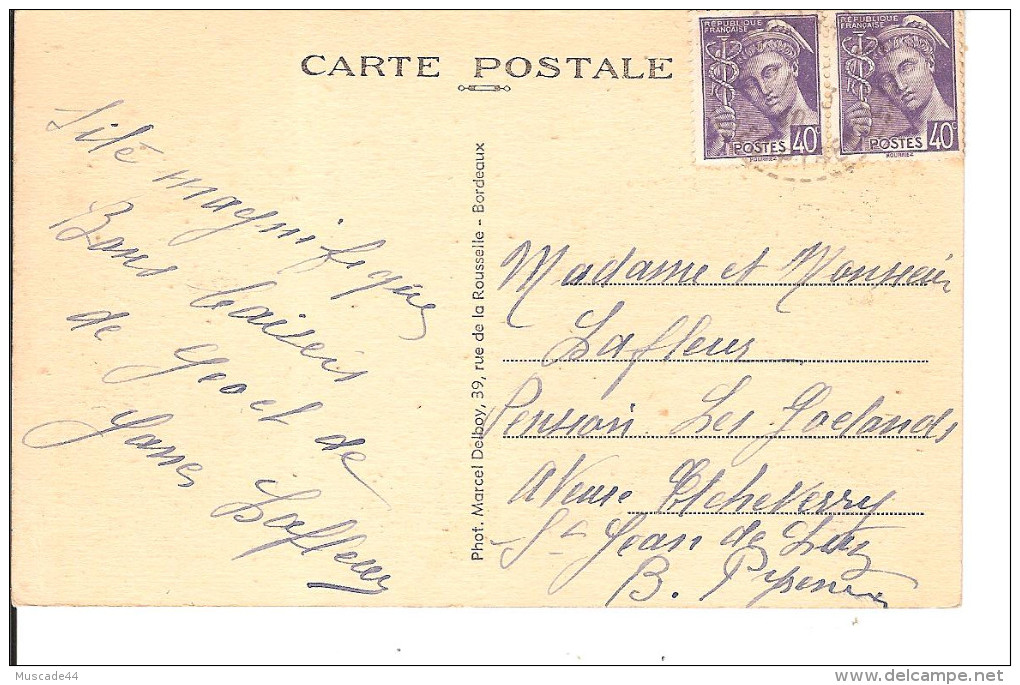 CARTE POSTALE
RÉPUBLIQUE
FRANÇAISE
POSTES 40c
RÉPUBLIQUE
FRANÇAISE
POSTES 40c
Sité magnifique
Bons baisers
de Geo et de
Lafleur
Phot. Marcel Delboy, 39, rue de la Rousselle - Bordeaux
Madame et Monsieur
Lafleur
Pension Les Goelands
Avenue Etcheverry
St Jean de Luz
B. Pyrénées
Muscade44
www.delcampe.net